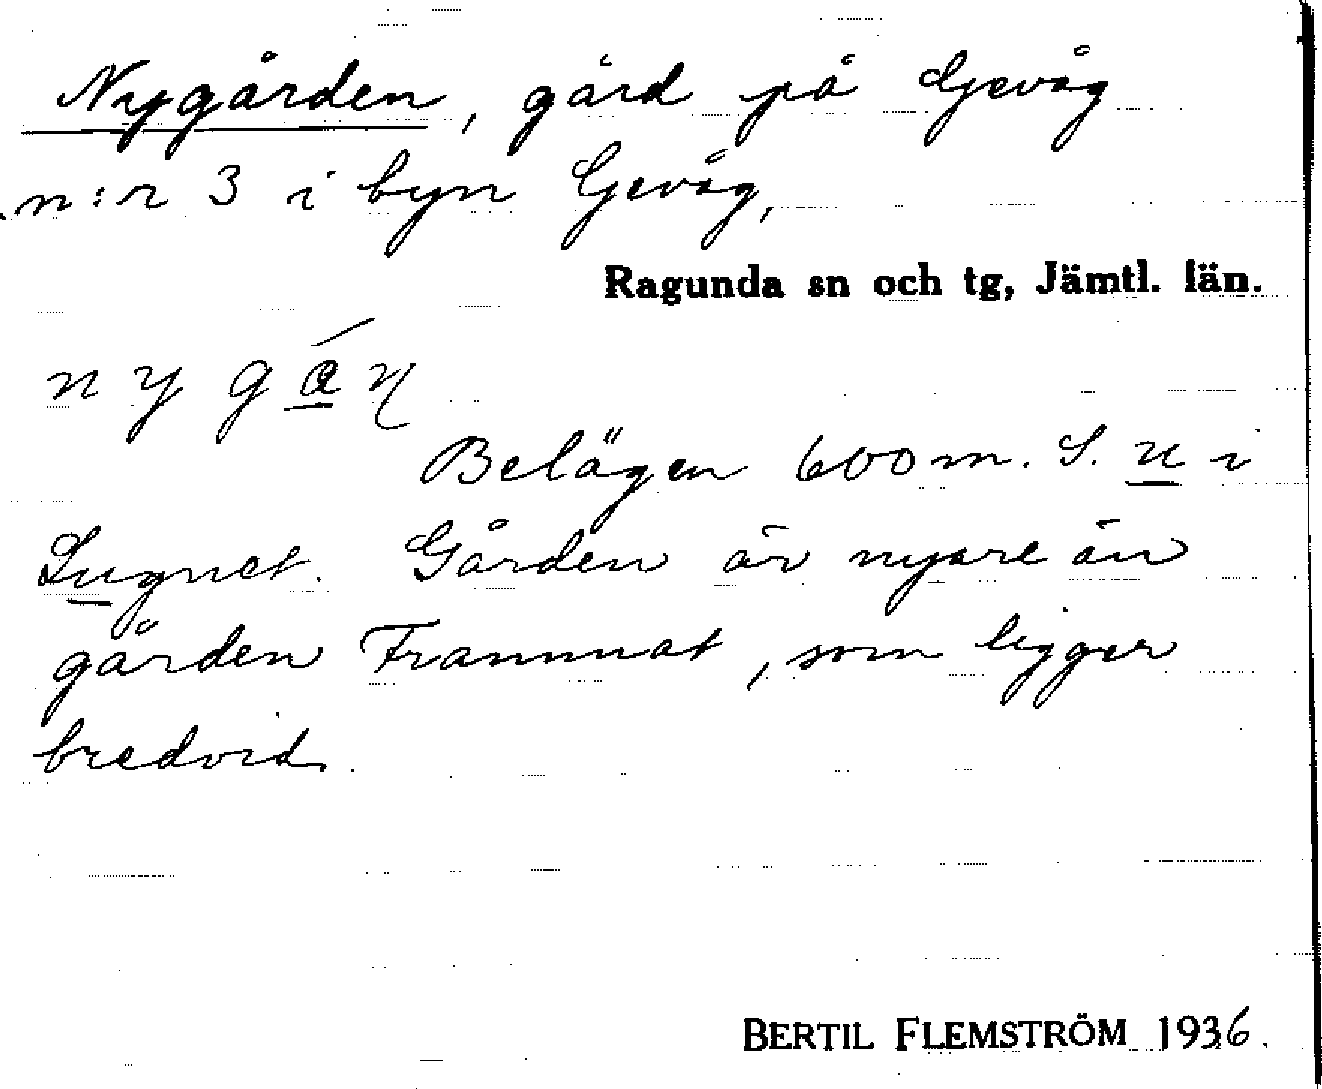 Nygården, gård på Gevåg
n:r 3 i byn Gevåg,
Ragunda sn och tg, Jämtl. län.
nygáɳ
Belägen 600 m. S. u i
Lugnet. Gården är nyare än
gården Framnat, som ligger
bredvid.
BERTIL FLEMSTRÖM 1936.